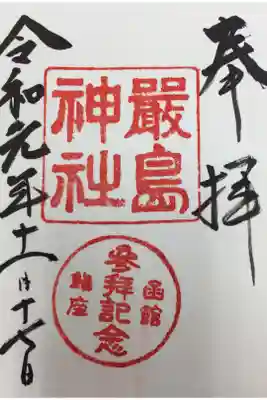 奉拝
嚴島
神社
函館
参拝記念
鎮座
令和元年十一月十七日